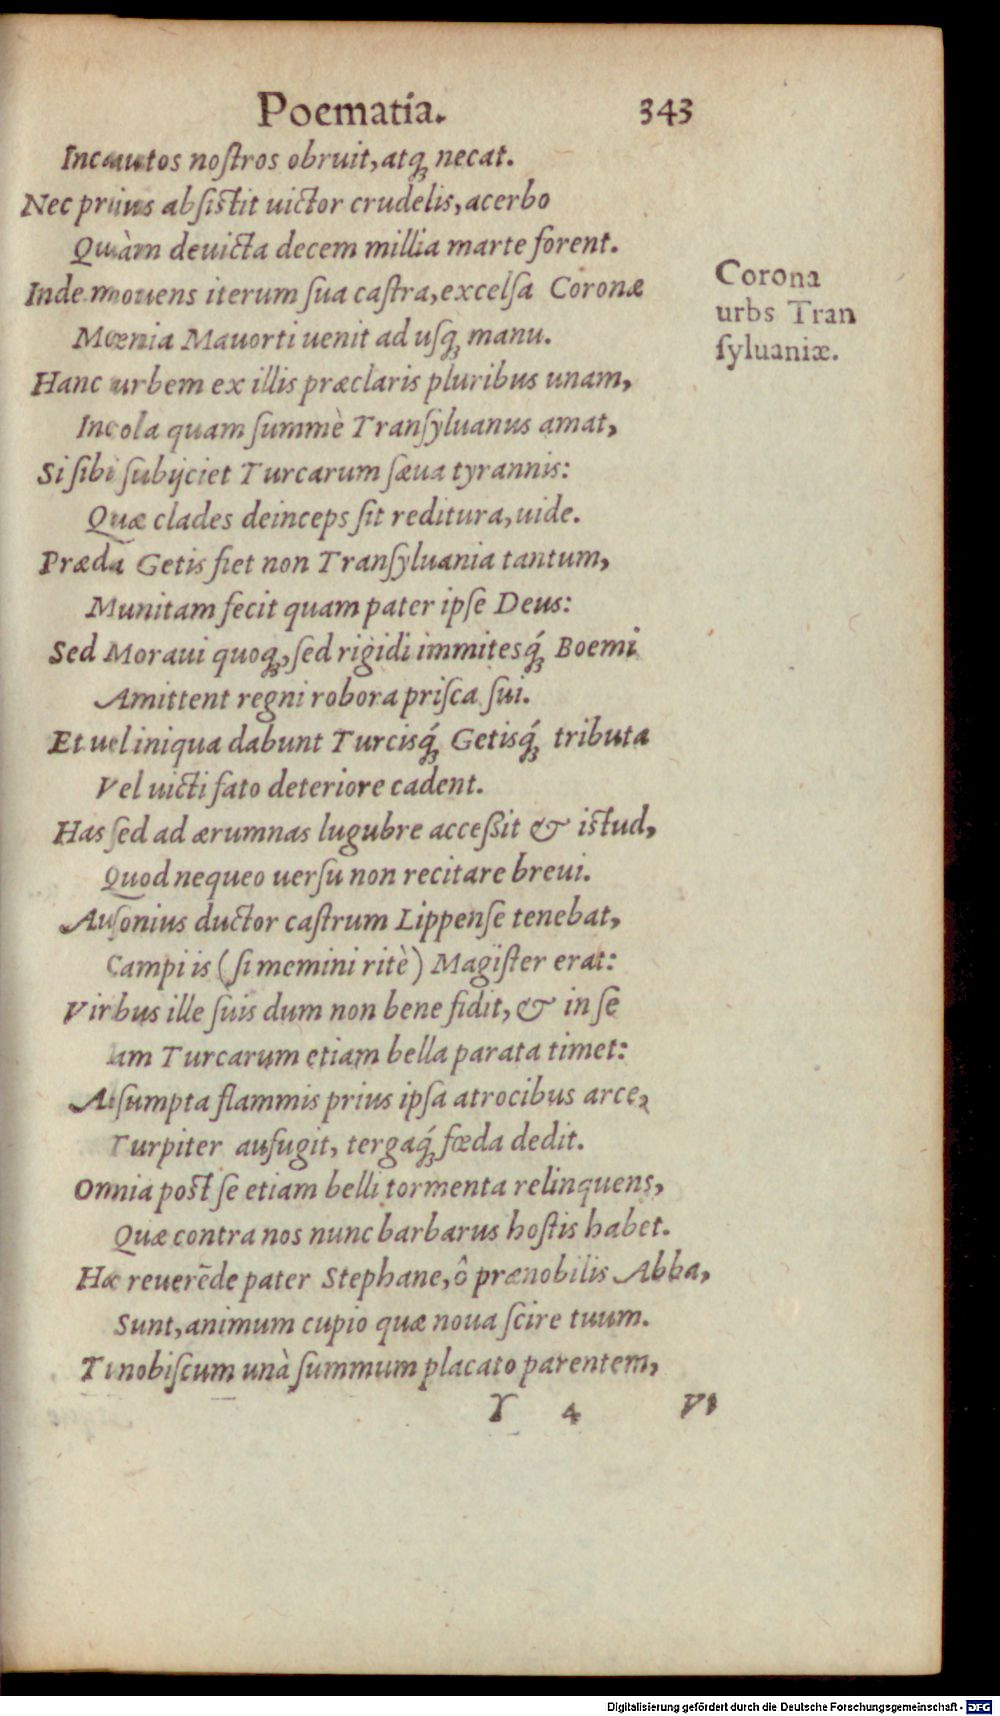 Poematia. 343
Incautos noſtros obruit, atq́ꝫ necat.
Nec prius abſiſtit uictor crudelis, acerbo
Quàm deuicta decem millia marte forent.
Inde mouens iterum ſua caſtra, excelſa Coronæ
Mœnia Mauorti uenit ad uſqꝫ manu.
Corona
urbs Tran
ſyluaniæ.
Hanc urbem ex illis præclaris pluribus unam,
Incola quam ſummè Tranſyluanus amat,
Si ſibi ſubijciet Turcarum ſæua tyrannis:
Quæ clades deinceps ſit reditura, uide.
Præda Getis fiet non Tranſyluania tantum,
Munitam fecit quam pater ipſe Deus:
Sed Moraui quoqꝫ, ſed rigidi immitesq́ꝫ Boemi
Amittent regni robora priſca ſui.
Et uel iniqua dabunt Turcisq́ꝫ Getisq́ꝫ tributa
Vel uicti fato deteriore cadent.
Has ſed ad ærumnas lugubre acceßit & iſtud,
Quod nequeo uerſu non recitare breui.
Auſonius ductor caſtrum Lippenſe tenebat,
Campi is (ſi memini ritè) Magiſter erat:
Viribus ille ſuis dum non bene fidit, & in ſe
Iam Turcarum etiam bella parata timet:
Aſſumpta flammis prius ipſa atrocibus arce,
Turpiter aufugit, tergaq́ꝫ fœda dedit.
Omnia poſt ſe etiam belli tormenta relinquens,
Quæ contra nos nunc barbarus hoſtis habet.
Hæc reuerēde pater Stephane, ô prænobilis Abba,
Sunt, animum cupio quæ noua ſcire tuum.
Tu nobiſcum unà ſummum placato parentem,
Y 4 Vt
Digitalisierung gefördert durch die Deutsche Forschungsgemeinschaft - DFG